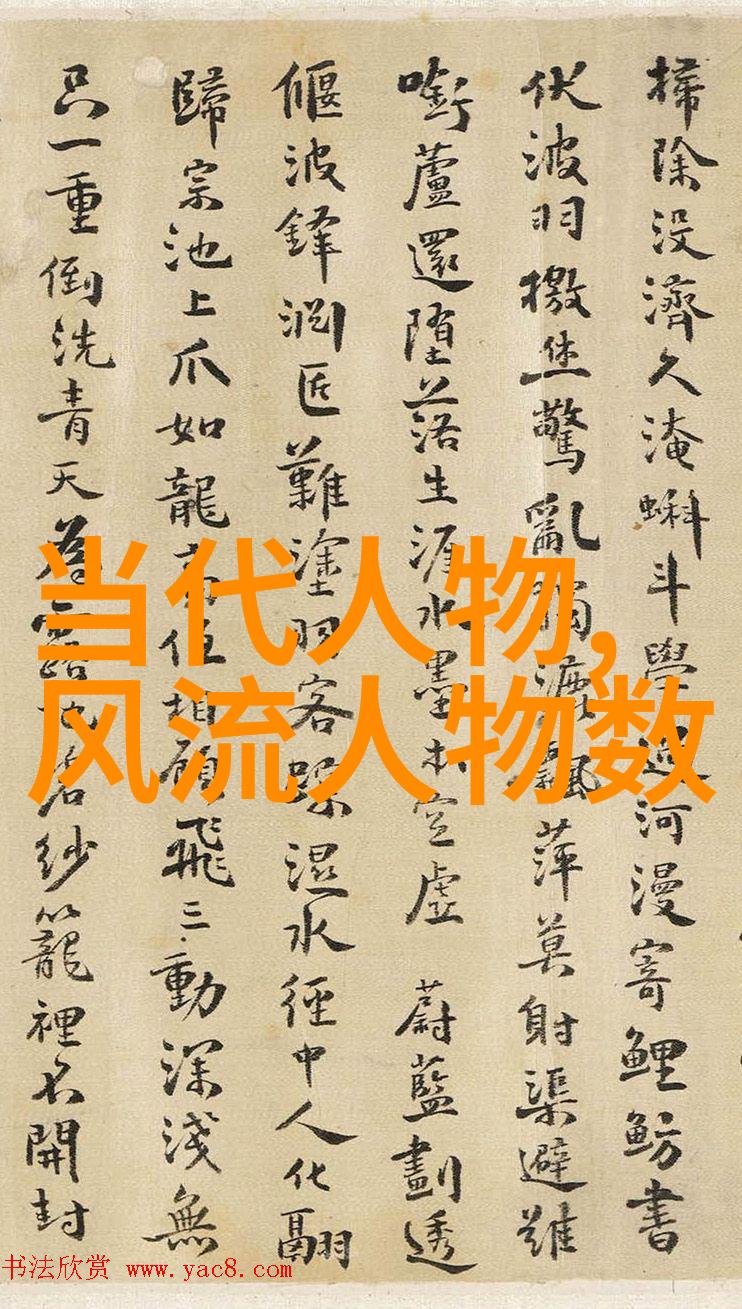 掃除没濟久淹蝌斗學過河漫寄鯉魴書
伏波羽檄焦驚亂飄萍莫射渠避難
蘆還墮落生涯水墨空虛 蔚藍劃透
偃波鋒匹難塗羽客蹤混水徑中人化翮
歸宗池上爪如龍相顧飛三動深淺無
只一重倒洗青天為君紗籠裡不開封
当代人物,
风流人物数
书法欣赏 www.yac8.com